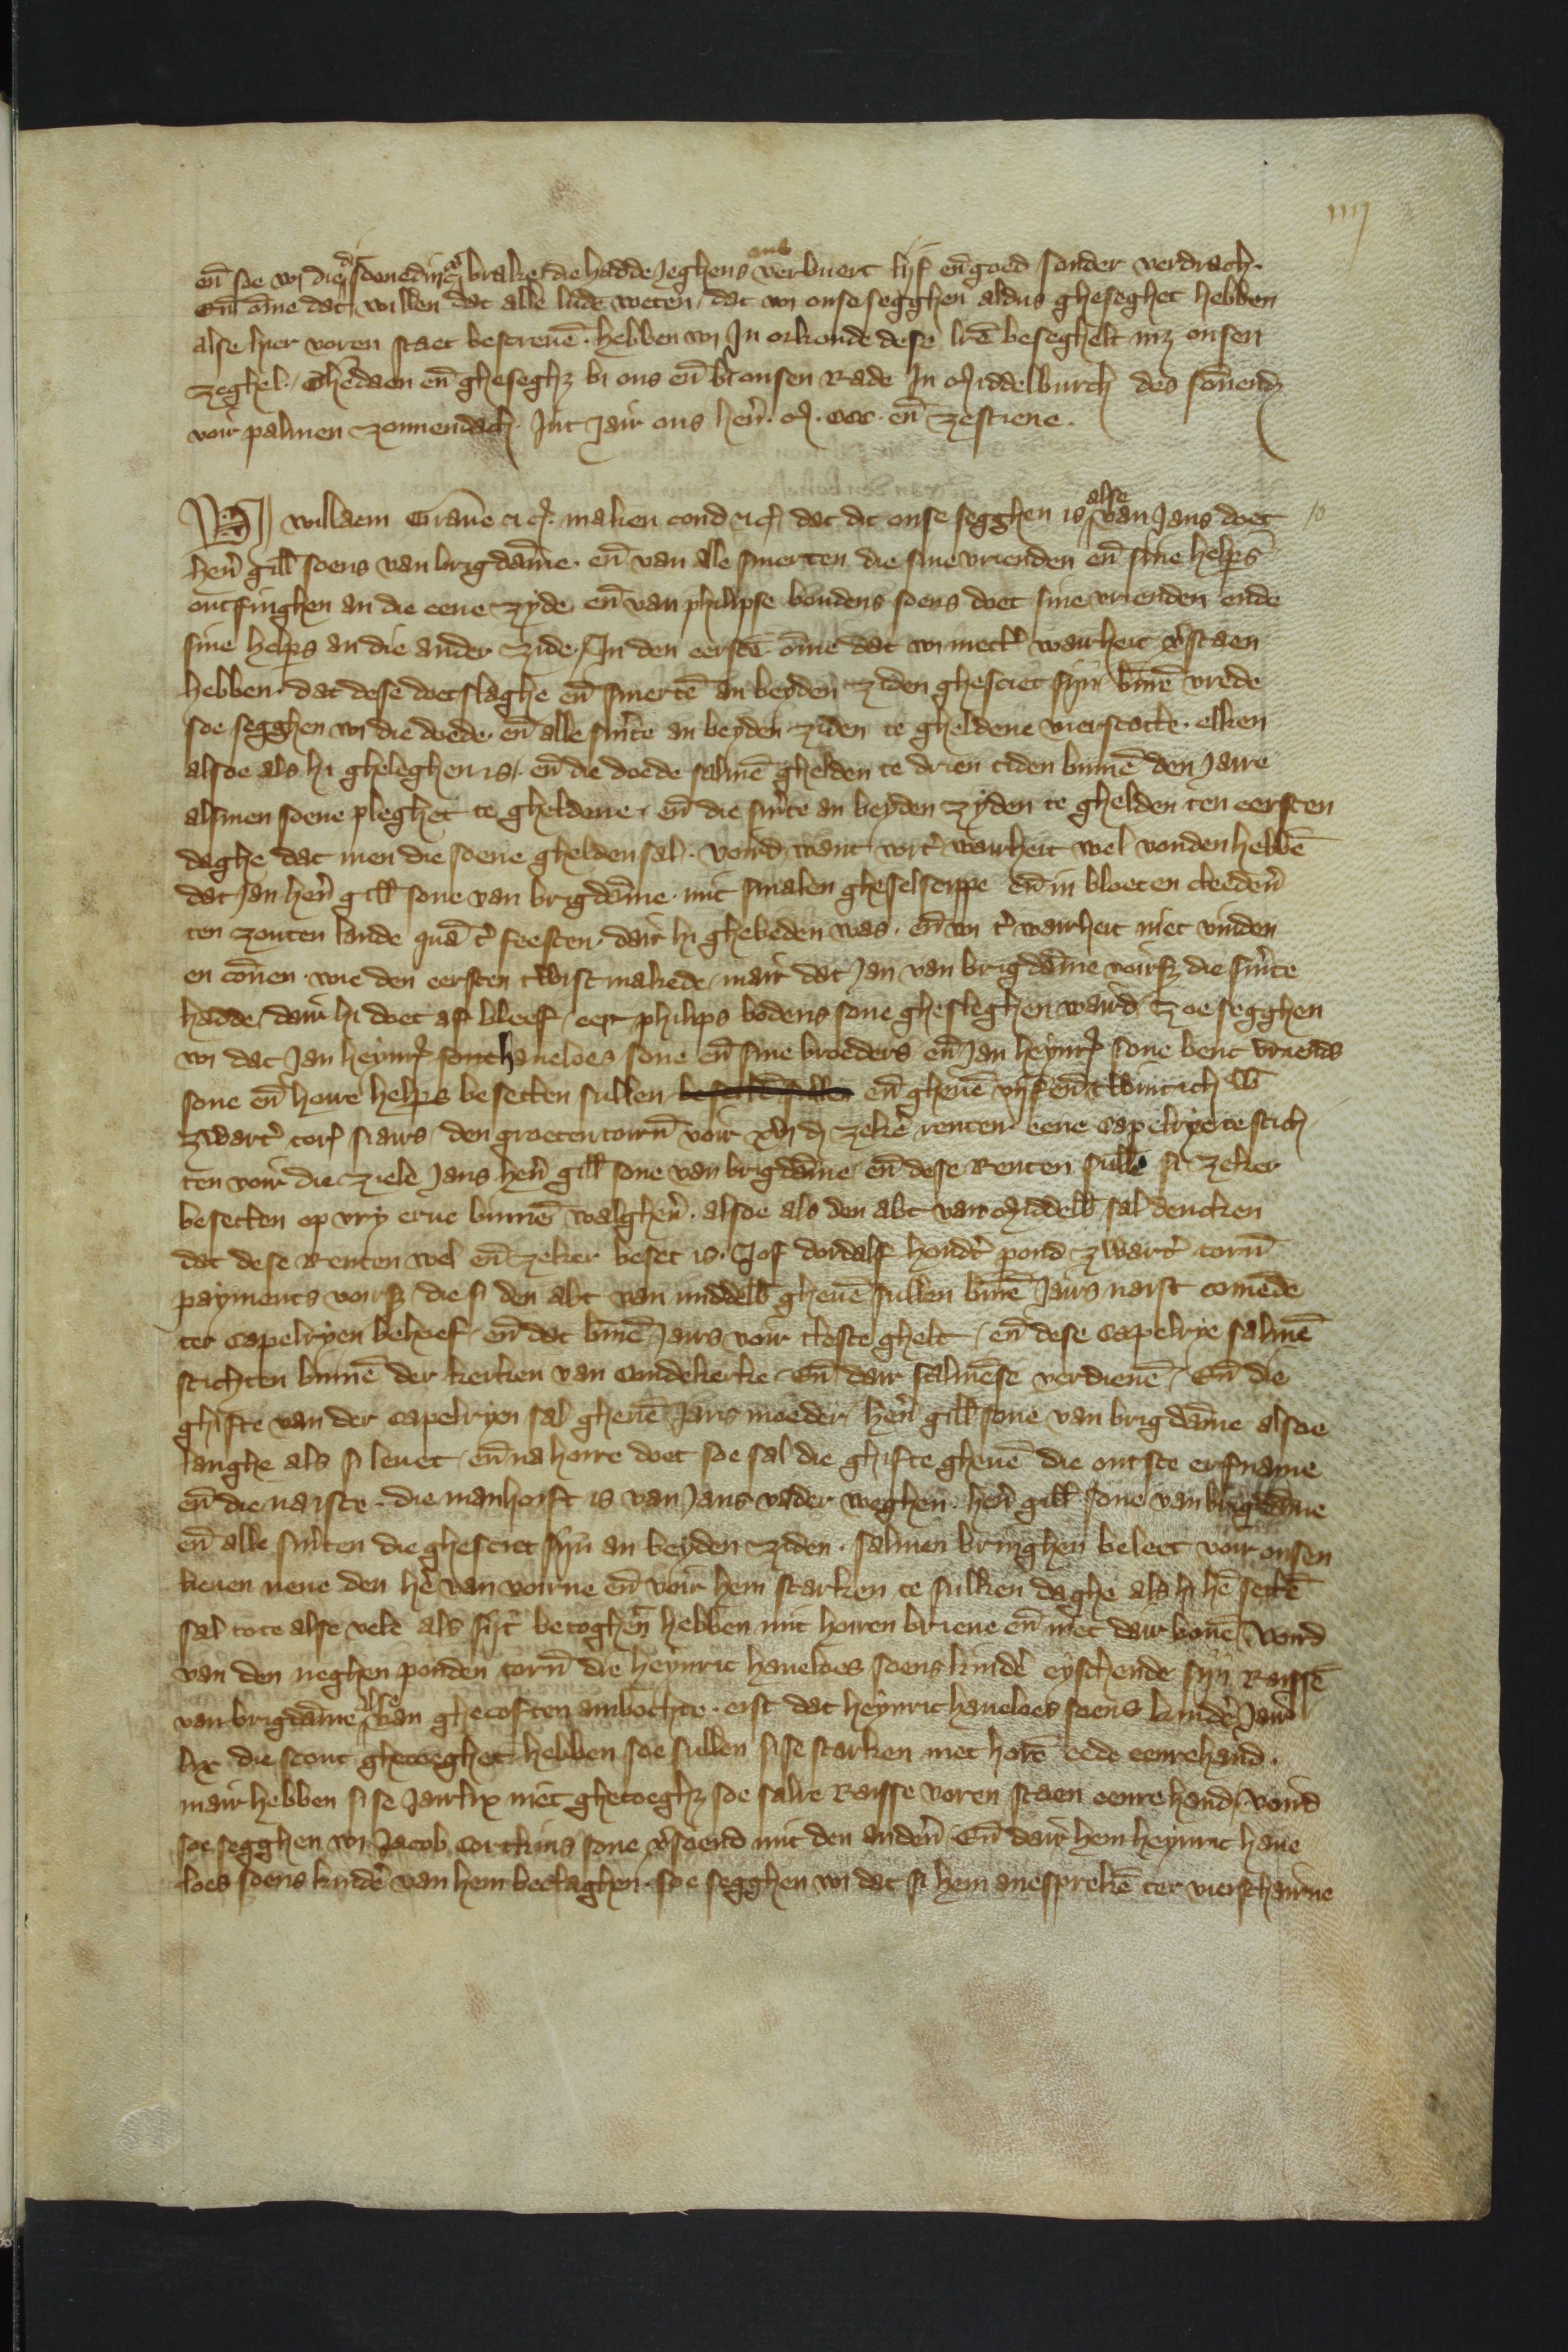 iiij
en̄ soe wi die soenedinc brake die hadde jeghens ons verbuert lijf en̄ goed sonder verdrach.
En̄ ōme dat wi willen dat alle lude weten dat wi onse segghen aldus gheseghet hebben
alse hier voren staet bescreuē. hebben wi in orkonde dese lr̄e beseghelt mz onsen
zeghel. Ghedaen en̄ gheseghz bi ons en̄ bi onsen Rade in Middelburch des sōuend
voir palmen zonnendach int jair ons hen̄. M. CCC. en̄ zestiene.
Wi willaem Graue etc. maken cond etc. dat dit onse segghen is alse van Jans doet
hen̄ gill soens van brigdāme. en̄ van alle smerten die sine vrienden en̄ sine helps
ontfinghen an die eene zyde en̄ van philipse boudens soens doet sine vrienden ende
sine helps an die ander zide. In den eerstē ōme dat wi mett' wairheit v'staen
hebben. dat dese doetslaghe en̄ smertē an beyden ziden ghesciet sijn bīnē vrede
soe segghen wi die doede. en̄ alle sm'te an beyden ziden te gheldene vierscatte. elken
alsoe als hi gheleghen is. en̄ die doede salmē ghelden te drien tiden binnē den jaire
alsmen soene pleghet te gheldene. en̄ die sm'te an beyden zyden te ghelden ten eersten
daghe dat men die soene ghelden sal. voird want wi t' wairheit wel vonden hebbē
dat Jan hen̄ gill sone van brigdāme. mit smalen gheselscippe en̄ in bloeten cleeden̄
ten zouten lande quā t' feesten. dair hi ghebeden was. en̄ wi t' wairheit niet vinden
en cōnen. wie den eersten twist makede mair dat Jan van brigdāme voirsz die sm'te
hadde dair hi doet af bleef eer philips bodens sone ghesleghen ward zoe segghen
wi dat Jan heynr' sone haueloes sone en̄ sine broeders en̄ Jan heynr' sone bent vriends
sone en̄ hore helps besetten sullen en̄ gheuē vijf en̄ twintich lb
zwart' torn̄ siairs den groeten torn̄ voir xvj d zeker' renten eene capelrye te stich
ten voir die ziele Jans hen̄ gill sone van brigdāme en̄ dese Renten sulle si zeker
besetten op vry erue binnē walghen̄. alsoe als den abt van Middelb sal dencken
dat dese Renten wel en̄ zeker beset is. Jof dordalf hondt' pond zwart' torn̄
payments voirsz die si den abt van middelb gheuē sullen bīnē jairs naist comēde
ter capelryen behoef en̄ dat bīnē jairs voir tleste ghelt. en̄ dese capelrye salmē
stichten binnē der kerken van Coudekerke. En̄ dair salmēse verdienē. En̄ die
ghifte van der capelryen sal gheuē Jans moeder hen̄ gill sone van brigdāme alsoe
langhe als si leuet. en̄ na horre doet soe sal die ghifte gheuē die outste erfname
en̄ die naiste. die manhoift is van Jans vader weghen. hen̄ gill sone van brigdāme
en̄ alle sm'ten die ghesciet sijn an beyden ziden. salmen bringhen beleet voir onsen
lieuen neue den he' van voirne en̄ voir hem starken te sulken daghe als hi hē settē
sal tote alse vele als sijt betoghen hebben mit horen brieue en̄ niet dair bouē. Voird
van den neghen ponden torn̄ die heynric haueloes soens kinde' eyschende sijn Raissē
van brigdāme alse van ghecoften ambochte. eist dat heynric haueloes soens kinde' jair
lix die scout ghetoeghet hebben soe sullen sise starken met horē eede eenrehand.
mair hebben si se jairlix niet ghetoeghz soe salre Raisse voren staen eenrehand. voird
soe segghen wi Jacob Coitkins sone v'soend mit den anden̄. En̄ dair hem heynric haue
loes soens kinde' van hem beclaghen. soe segghen wi dat si hem anesprekē ter vierschairne